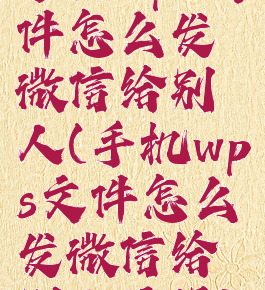 件怎么发
微信给别
人(手机wp
s文件怎么
发微信给